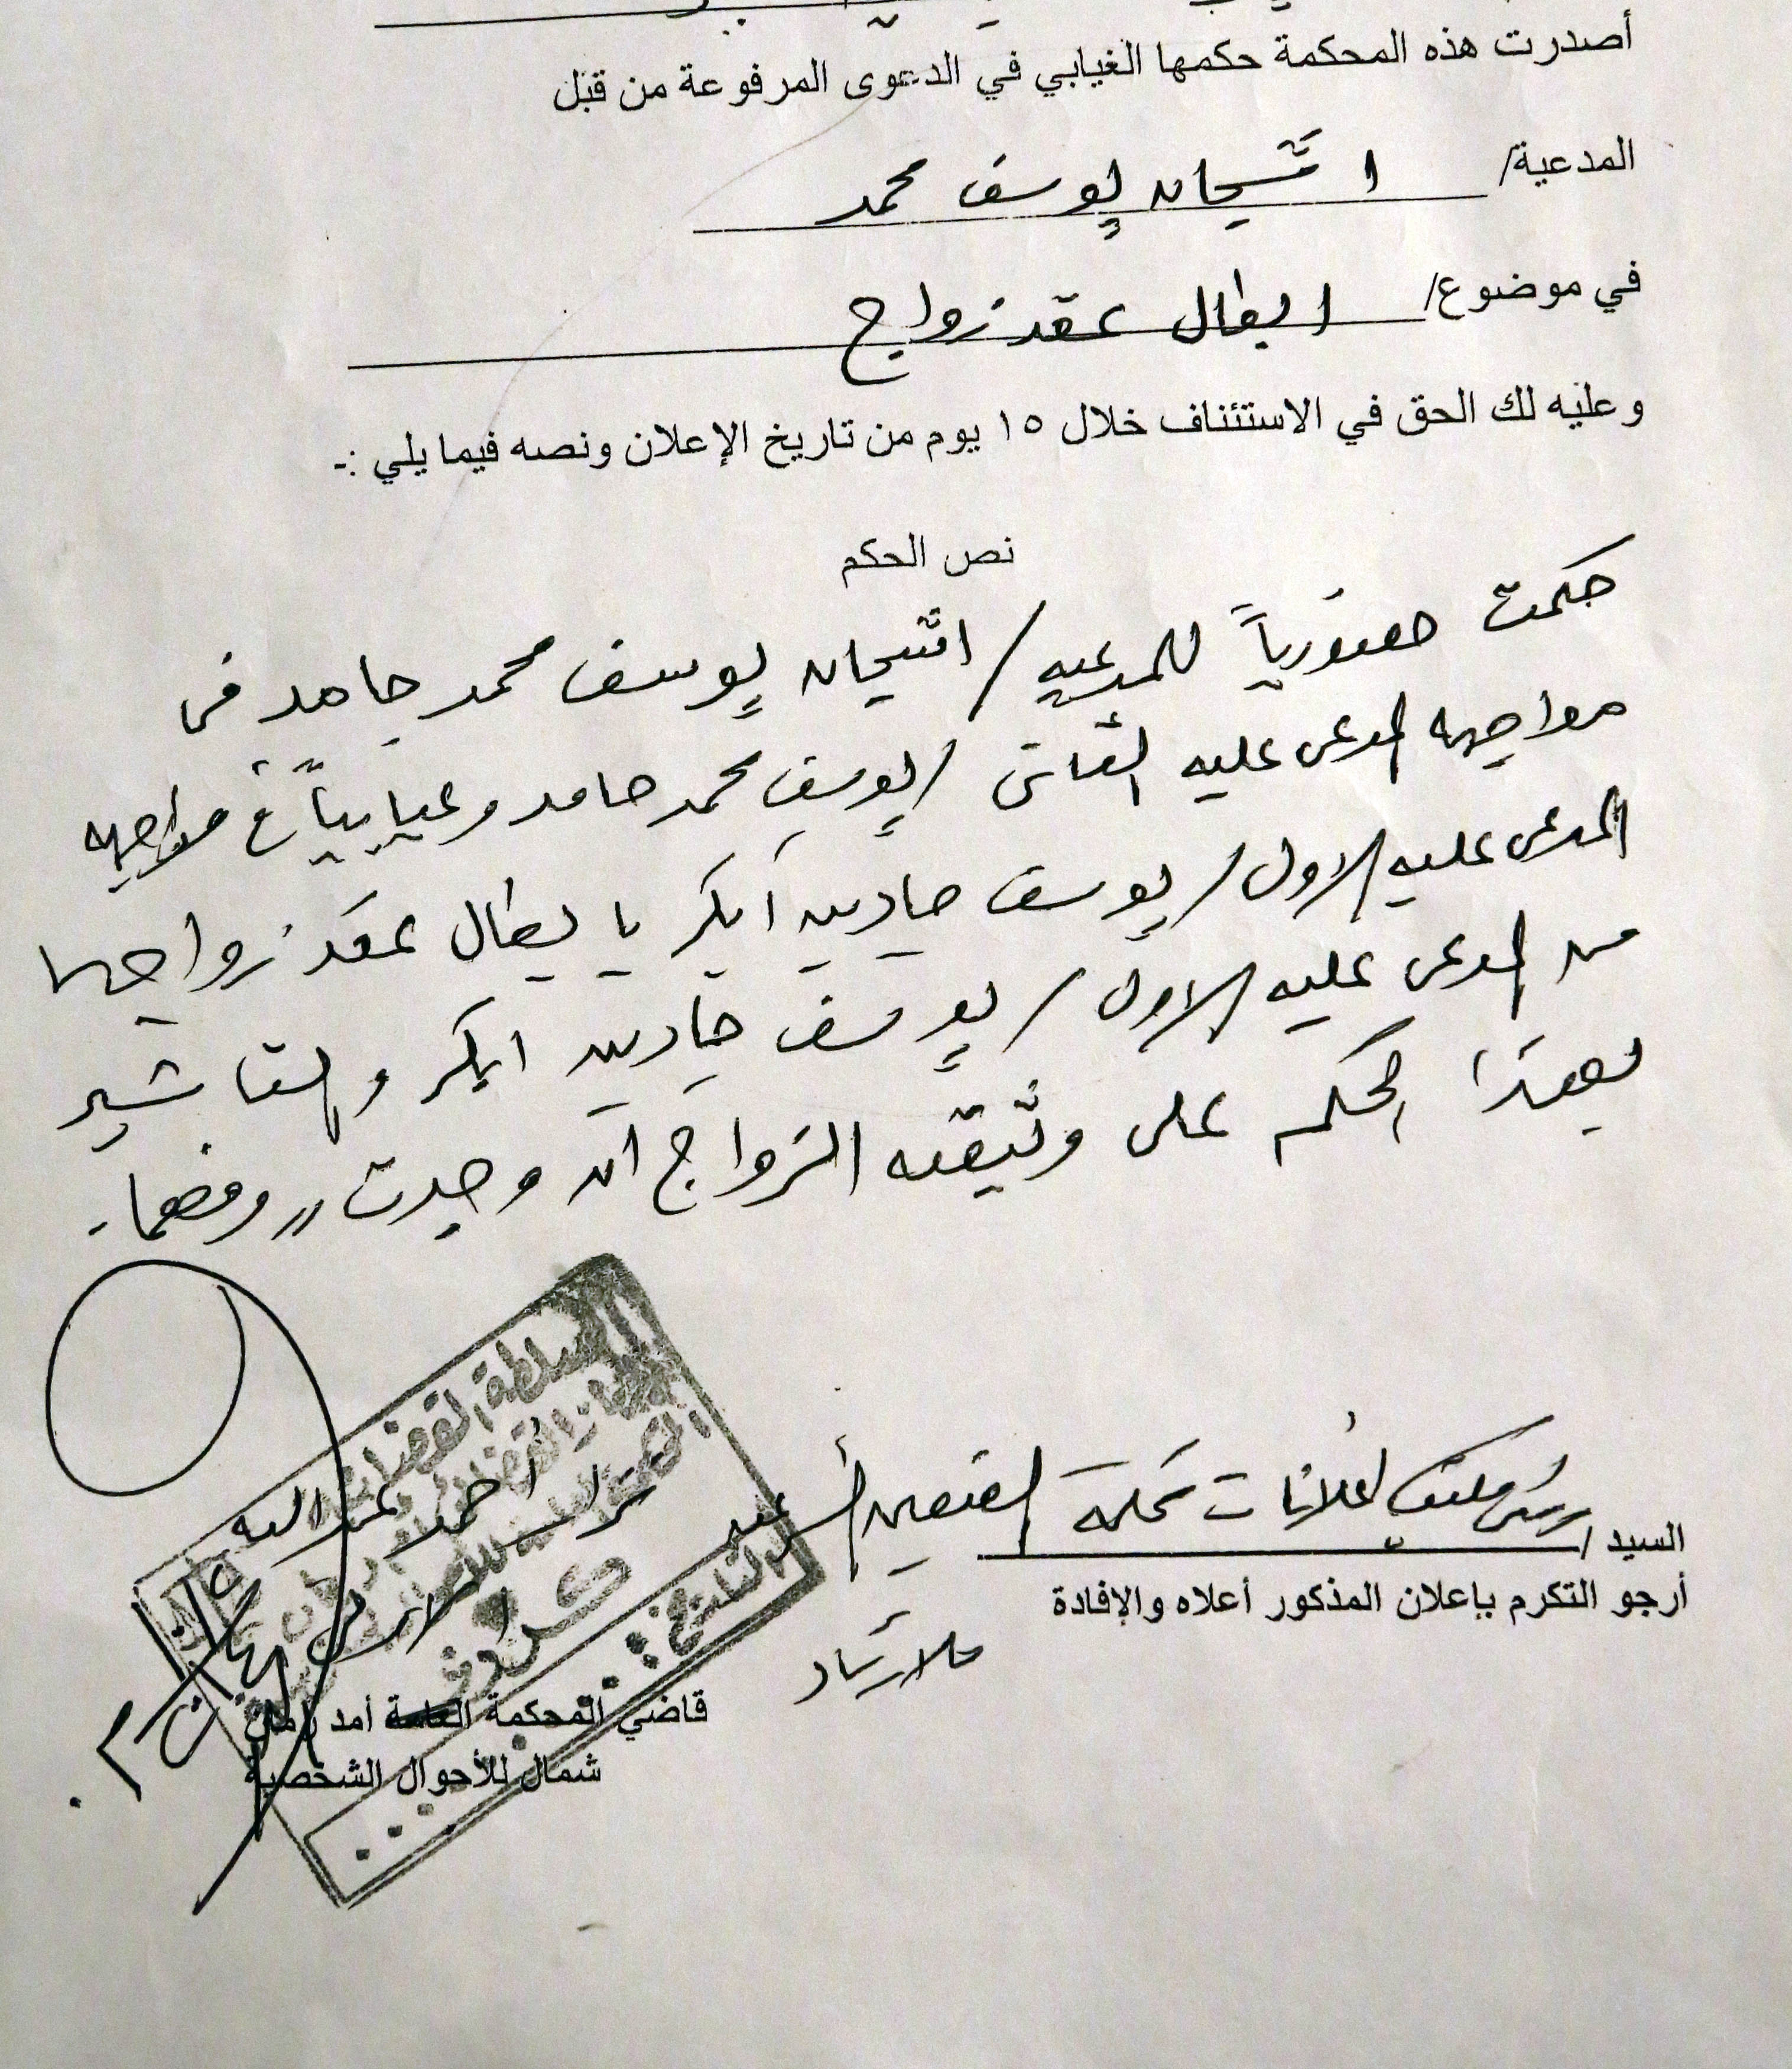 أصدرت هذه المحكمة حكمها الغيابي في الدعوى المرفوعة من قبل
المدعية/ اشجان يوسف محمد
في موضوع/ ابطال عقد زواج
وعليه لك الحق في الاستئناف خلال ١٥ يوم من تاريخ الإعلان ونصه فيما يلي :-
نص الحكم
حكمت حضورياً للمدعيه / اشجان يوسف محمد حامد فى
مواجهه المدعى عليه الثانى / يوسف محمد حامد وغيابياً فى مواجهه
المدعى عليه الاول / يوسف ابكر بابطال عقد زواجها
من المدعى عليه الاول / يوسف ابكر والتاشير
بهذا الحكم على وثيقه الزواج ان وجدت
السلطة القضائية
احمد عبد الله
السيد / اعلانات محكمة
التاريخ:
أرجو التكرم بإعلان المذكور أعلاه والإفادة
قاضي المحكمة العامة أمدرمان
شمال للأحوال الشخصية